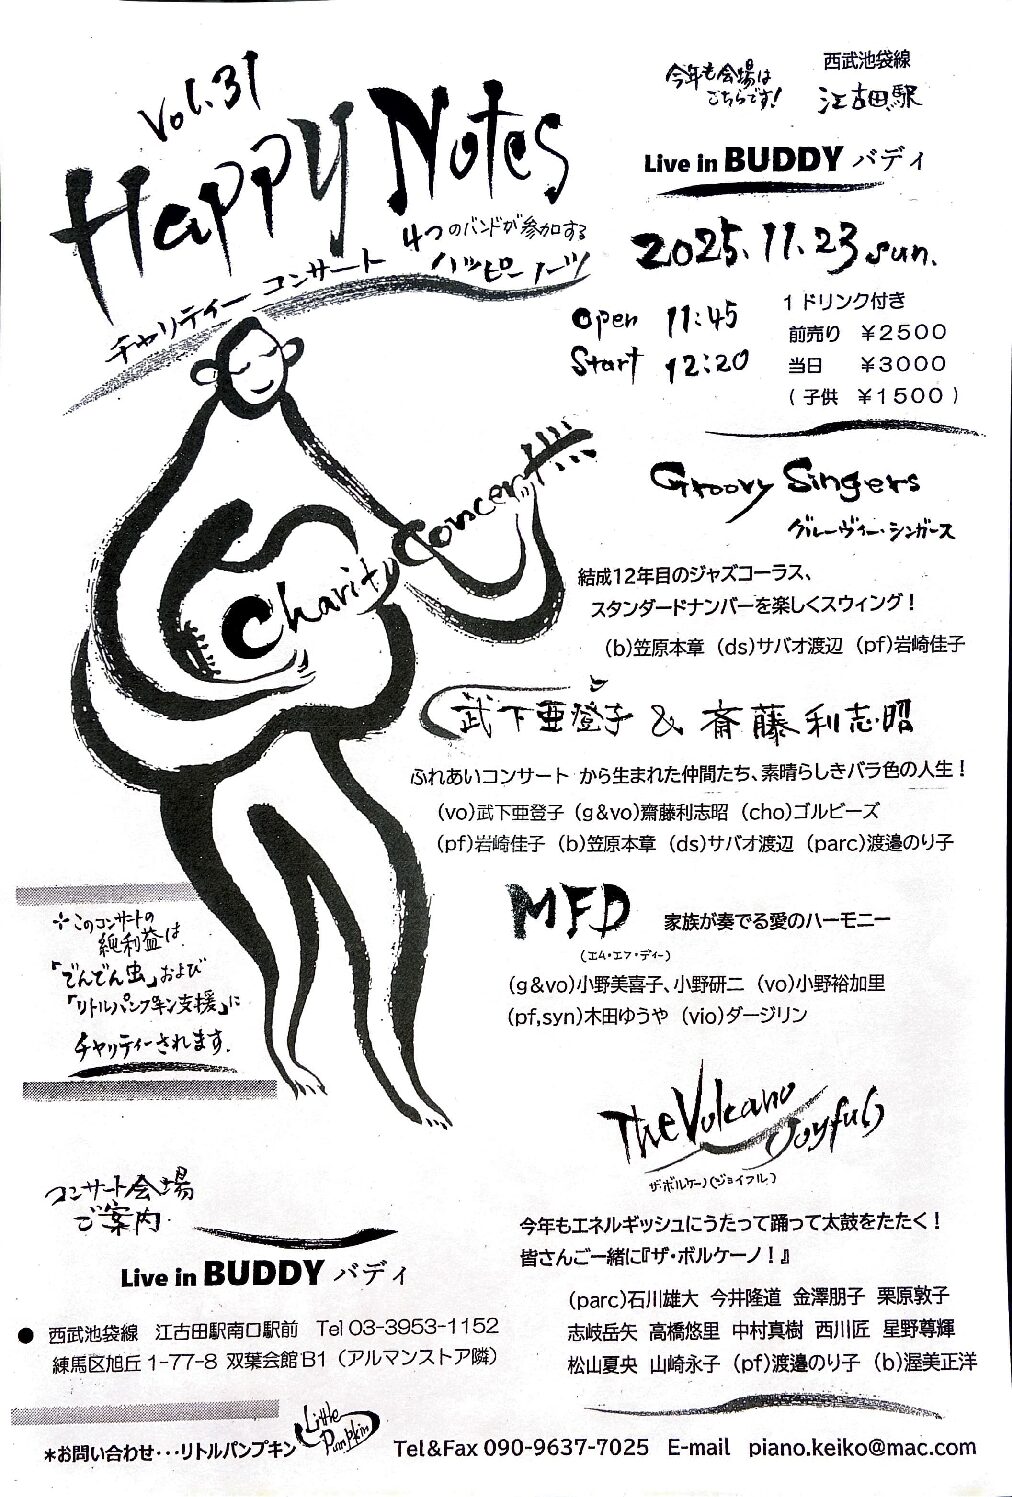 Vol.31
Happy Notes
チャリティー コンサート
4つのバンドが参加する
ハッピーノーツ
今年も会場は
こちらです!
西武池袋線
江古田駅
Live in BUDDY バディ
2025.11.23 sun.
Open 11:45
Start 12:20
1ドリンク付き
前売り ¥2500
当日 ¥3000
(子供 ¥1500)
Charity Concert
Groovy Singers
グルーヴィー・シンガーズ
結成12年目のジャズコーラス、
スタンダードナンバーを楽しくスウィング!
(b)笠原本章 (ds)サバオ渡辺 (pf)岩崎佳子
武下亜登子 & 斉藤利志昭
ふれあいコンサート から生まれた仲間たち、素晴らしきバラ色の人生!
(vo)武下亜登子 (g&vo)齋藤利志昭 (cho)ゴルビーズ
(pf)岩崎佳子 (b)笠原本章 (ds)サバオ渡辺 (parc)渡邉のり子
MFD 家族が奏でる愛のハーモニー
(エム・エフ・ディー)
(g&vo)小野美喜子、小野研二 (vo)小野裕加里
(pf,syn)木田ゆうや (vio)ダージリン
*このコンサートの
純利益は
「でんでん虫」および
「リトルパンプキン支援」に
チャリティーされます.
The Volcano Joyful
ザ・ボルケーノ(ジョイフル)
今年もエネルギッシュにうたって踊って太鼓をたたく!
皆さんご一緒に『ザ・ボルケーノ!』
(parc)石川雄大 今井隆道 金澤朋子 栗原敦子
志岐岳矢 高橋悠里 中村真樹 西川匠 星野尊輝
松山夏央 山崎永子 (pf)渡邉のり子 (b)渥美正洋
コンサート会場
ご案内.
Live in BUDDY バディ
● 西武池袋線 江古田駅南口駅前 Tel 03-3953-1152
練馬区旭丘1-77-8 双葉会館B1 (アルマンストア隣)
*お問い合わせ・・・リトルパンプキン Little Pumpkin Tel&Fax 090-9637-7025 E-mail piano.keiko@mac.com